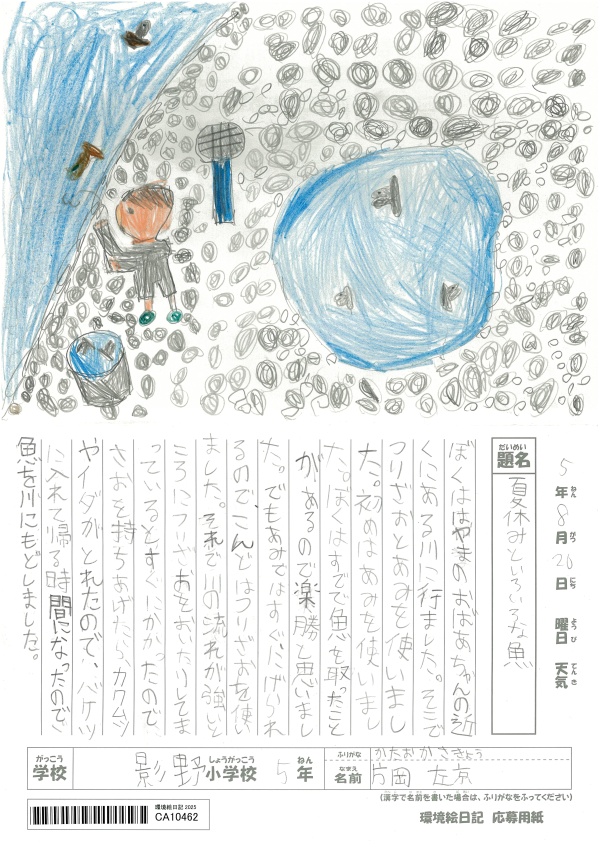 5年8月20日 曜日 天気
ねん がつ にち ようび てんき
だいめい
題名
夏休みといろいろな魚
ぼくははやまのおばあちゃんの近
くにある川に行ました。そこで
つりざおとあみを使いまし
た。初めはあみを使いまし
た。ぼくはすでで魚を取ったこと
があるので楽勝と思いまし
た。でもあみではすぐににげられ
るので、こんどはつりざおを使い
ました。それで川の流れが強いと
ころにつりざおをおいたりしてま
っているとすぐにかかったので
さおを持ちあげたら、カワムツ
やイダがとれたので、バケツ
に入れて帰る時間になったので
魚を川にもどしました。
がっこう
学校
影野小学校 5年
しょうがっこう ねん
ふりがな
かたおか さきょう
なまえ
名前
片岡 左京
(漢字で名前を書いた場合は、ふりがなをふってください)
環境絵日記 2025
CA10462
環境絵日記 応募用紙